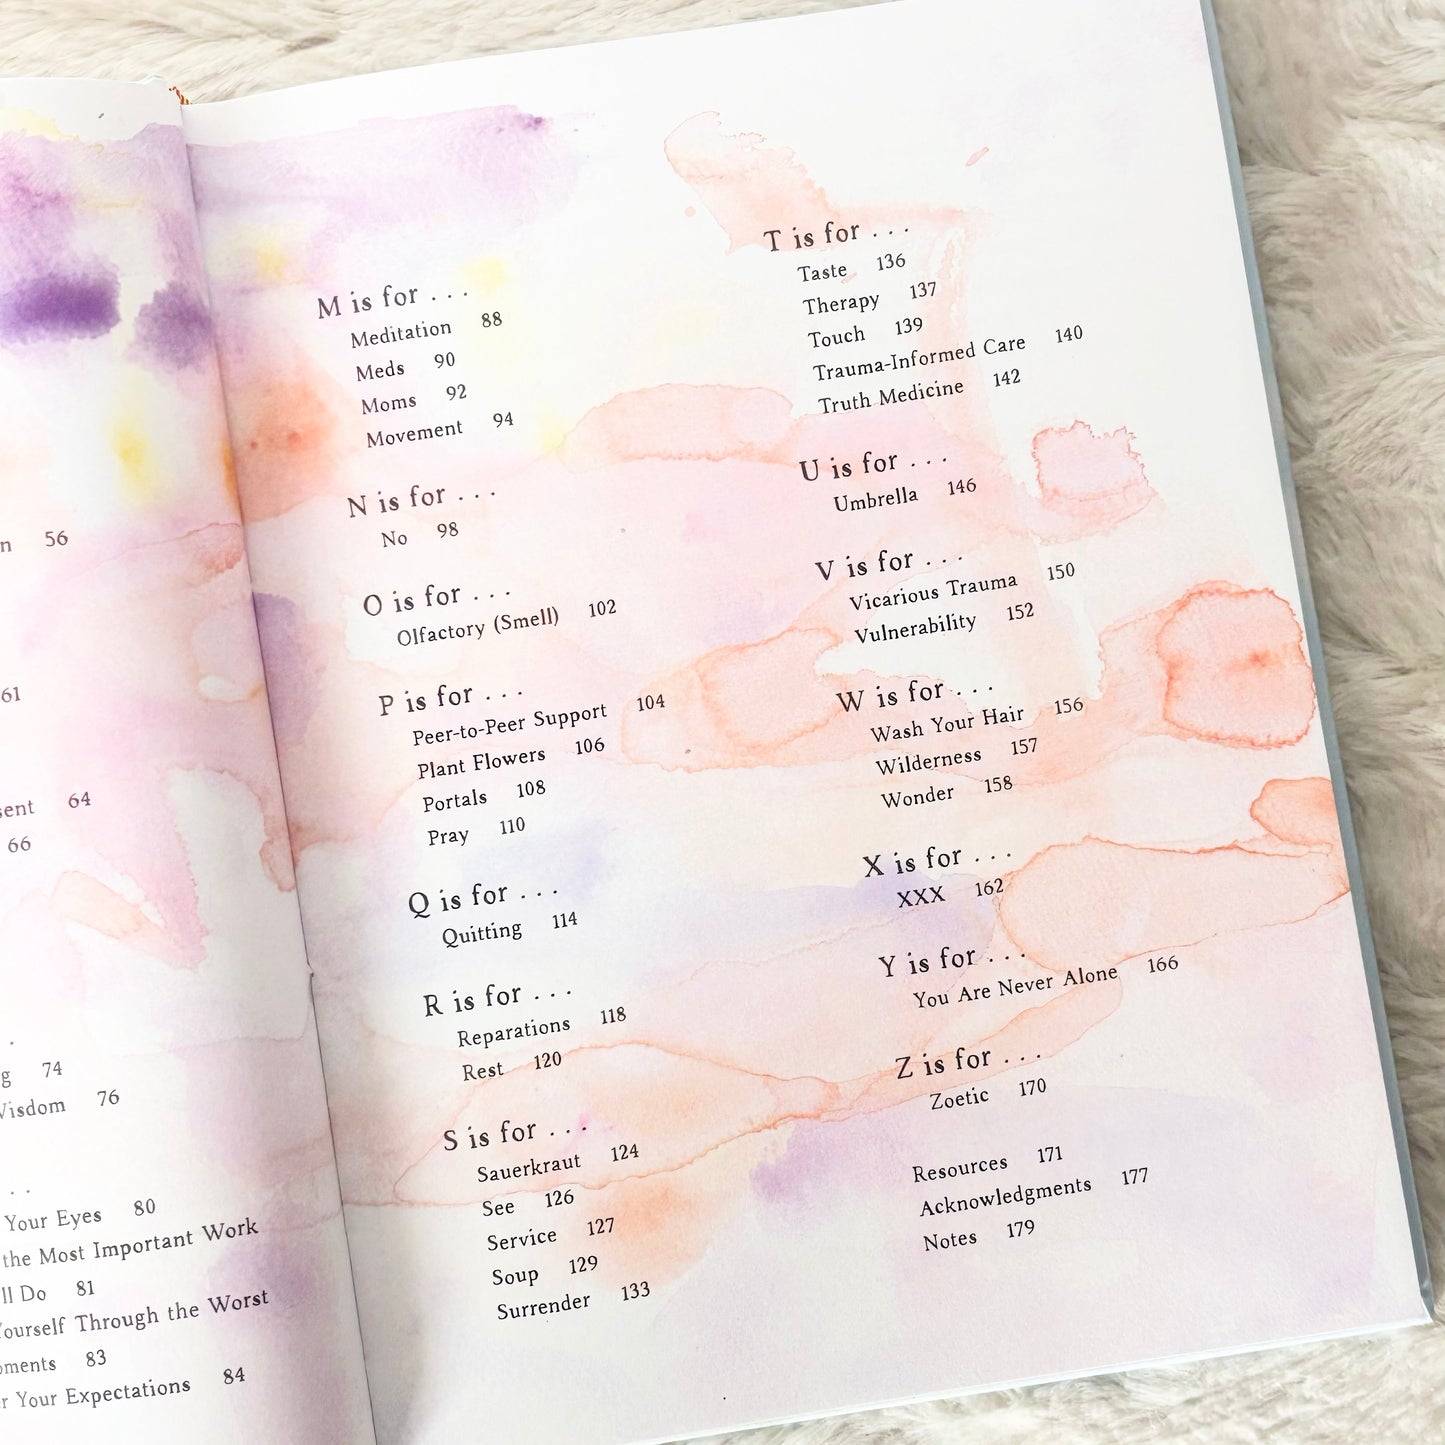 56
61
64
66
74
Wisdom 76
Your Eyes 80
the Most Important Work
ll Do 81
Yourself Through the Worst
83
Your Expectations 84
M is for . . .
Meditation 88
Meds 90
Moms 92
Movement 94
N is for . . .
No 98
O is for . . .
Olfactory (Smell) 102
P is for . . .
Peer-to-Peer Support 104
Plant Flowers 106
Portals 108
Pray 110
Q is for . . .
Quitting 114
R is for . . .
Reparations 118
Rest 120
S is for . . .
Sauerkraut 124
See 126
Service 127
Soup 129
Surrender 133
T is for . . .
Taste 136
Therapy 137
Touch 139
Trauma-Informed Care 140
Truth Medicine 142
U is for . . .
Umbrella 146
V is for . . .
Vicarious Trauma 150
Vulnerability 152
W is for . . .
Wash Your Hair 156
Wilderness 157
Wonder 158
X is for . . .
XXX 162
Y is for . . .
You Are Never Alone 166
Z is for . . .
Zoetic 170
Resources 171
Acknowledgments 177
Notes 179